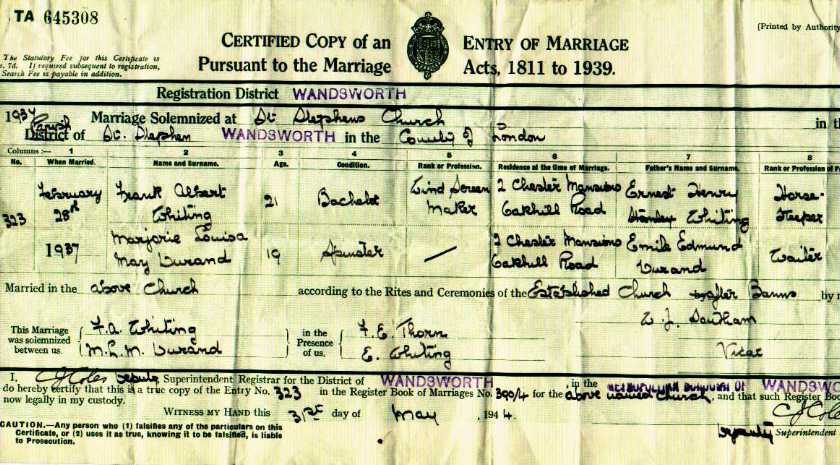 TA 645308
CERTIFIED COPY of an ENTRY OF MARRIAGE
Pursuant to the Marriage Acts, 1811 to 1939.
[Printed by Authority
The Statutory Fee for this Certificate is
7d. If required subsequent to registration,
Search Fee is payable in addition.
Registration District WANDSWORTH
1937 Marriage Solemnized at St. Stephens Church in th
Parish
District of St. Stephen WANDSWORTH in the County of London
Columns :— 1 2 3 4 5 6 7 8
No. When Married. Name and Surname. Age. Condition. Rank or Profession. Residence at the time of Marriage. Father's Name and Surname. Rank or Profession
323 February 28th 1937 Frank Albert Whiting 21 Bachelor Wind Screen Maker 2 Chester Mansions Oakhill Road Ernest Henry Stanley Whiting Horse-Keeper
Marjorie Louisa May Durand 19 Spinster — 2 Chester Mansions Oakhill Road Emile Edmund Durand Waiter
Married in the above Church according to the Rites and Ceremonies of the Established Church after Banns by m
This Marriage was solemnized between us, F. A. Whiting M. L. M. Durand in the Presence of us, F. E. Thorn E. Whiting
Vicar
I, Deputy Superintendent Registrar for the District of WANDSWORTH, in the METROPOLITAN BOROUGH OF WANDSWO
do hereby certify that this is a true copy of the Entry No. 323 in the Register Book of Marriages No. 390/4 for the above named Church, and that such Register Boo
now legally in my custody.
WITNESS MY HAND this 31st day of May, 1944.
CAUTION.—Any person who (1) falsifies any of the particulars on this
Certificate, or (2) uses it as true, knowing it to be falsified, is liable
to Prosecution.
Deputy Superintendent